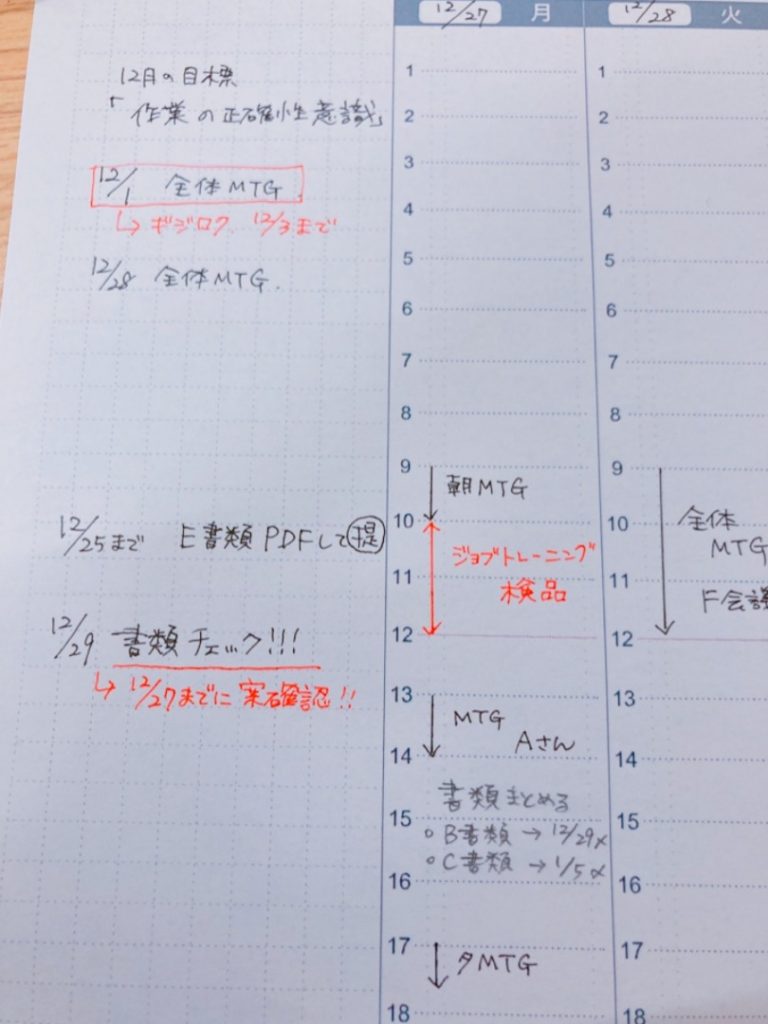 12月の目標
「作業の正確性意識」
12/1 全体MTG.
↳ ギジロク、12/3まで
12/28 全体MTG.
12/25まで E書類PDFして提
12/29 書類チェック!!!
↳ 12/27までに案確認!!
12/27 月
1
2
3
4
5
6
7
8
9
朝MTG
10
ジョブトレーニング
11
検品
12
13
MTG
Aさん
14
書類まとめる
15
○B書類→12/29〆
○C書類→1/5〆
16
17
夕MTG
18
12/28 火
1
2
3
4
5
6
7
8
9
10
全体
MTG
11
F会議
12
13
14
15
16
17
18